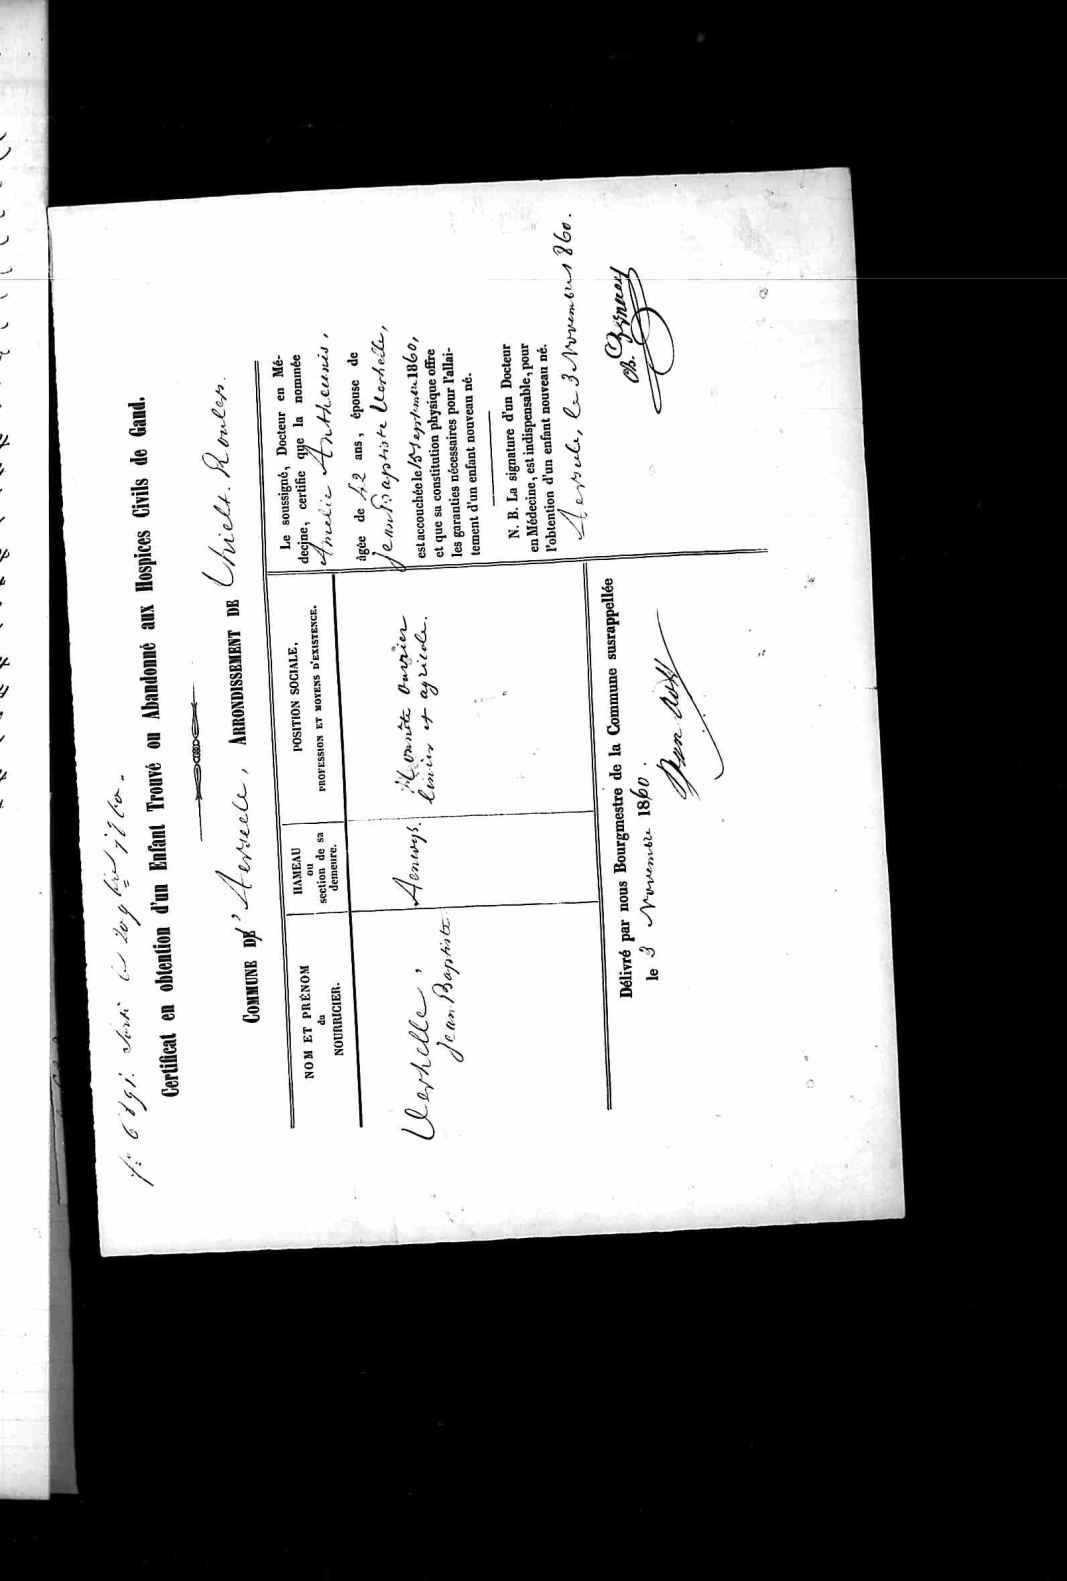 Certificat en obtention d'un Enfant Trouvé ou Abandonné aux Hospices Civils de Gand.
COMMUNE D'Aerseele, ARRONDISSEMENT DE Thielt-Roulers.
NOM ET PRÉNOM
du
NOURRICIER.
HAMEAU
ou
section de sa
demeure.
POSITION SOCIALE,
PROFESSION ET MOYENS D'EXISTENCE.
Verhelle,
Jean Baptiste
Honnête ouvrier
linier et agricole.
Le soussigné, Docteur en Mé-
decine, certifie que la nommée
Amelie Antheunis,
âgée de 42 ans, épouse de
Jean Baptiste Verhelle,
est accouchée le 15 septembre 1860,
et que sa constitution physique offre
les garanties nécessaires pour l'allai-
tement d'un enfant nouveau né.
N. B. La signature d'un Docteur
en Médecine, est indispensable, pour
l'obtention d'un enfant nouveau né.
Aerseele, le 3 Novembre 1860.
Délivré par nous Bourgmestre de la Commune susrappellée
le 3 Novembre 1860.